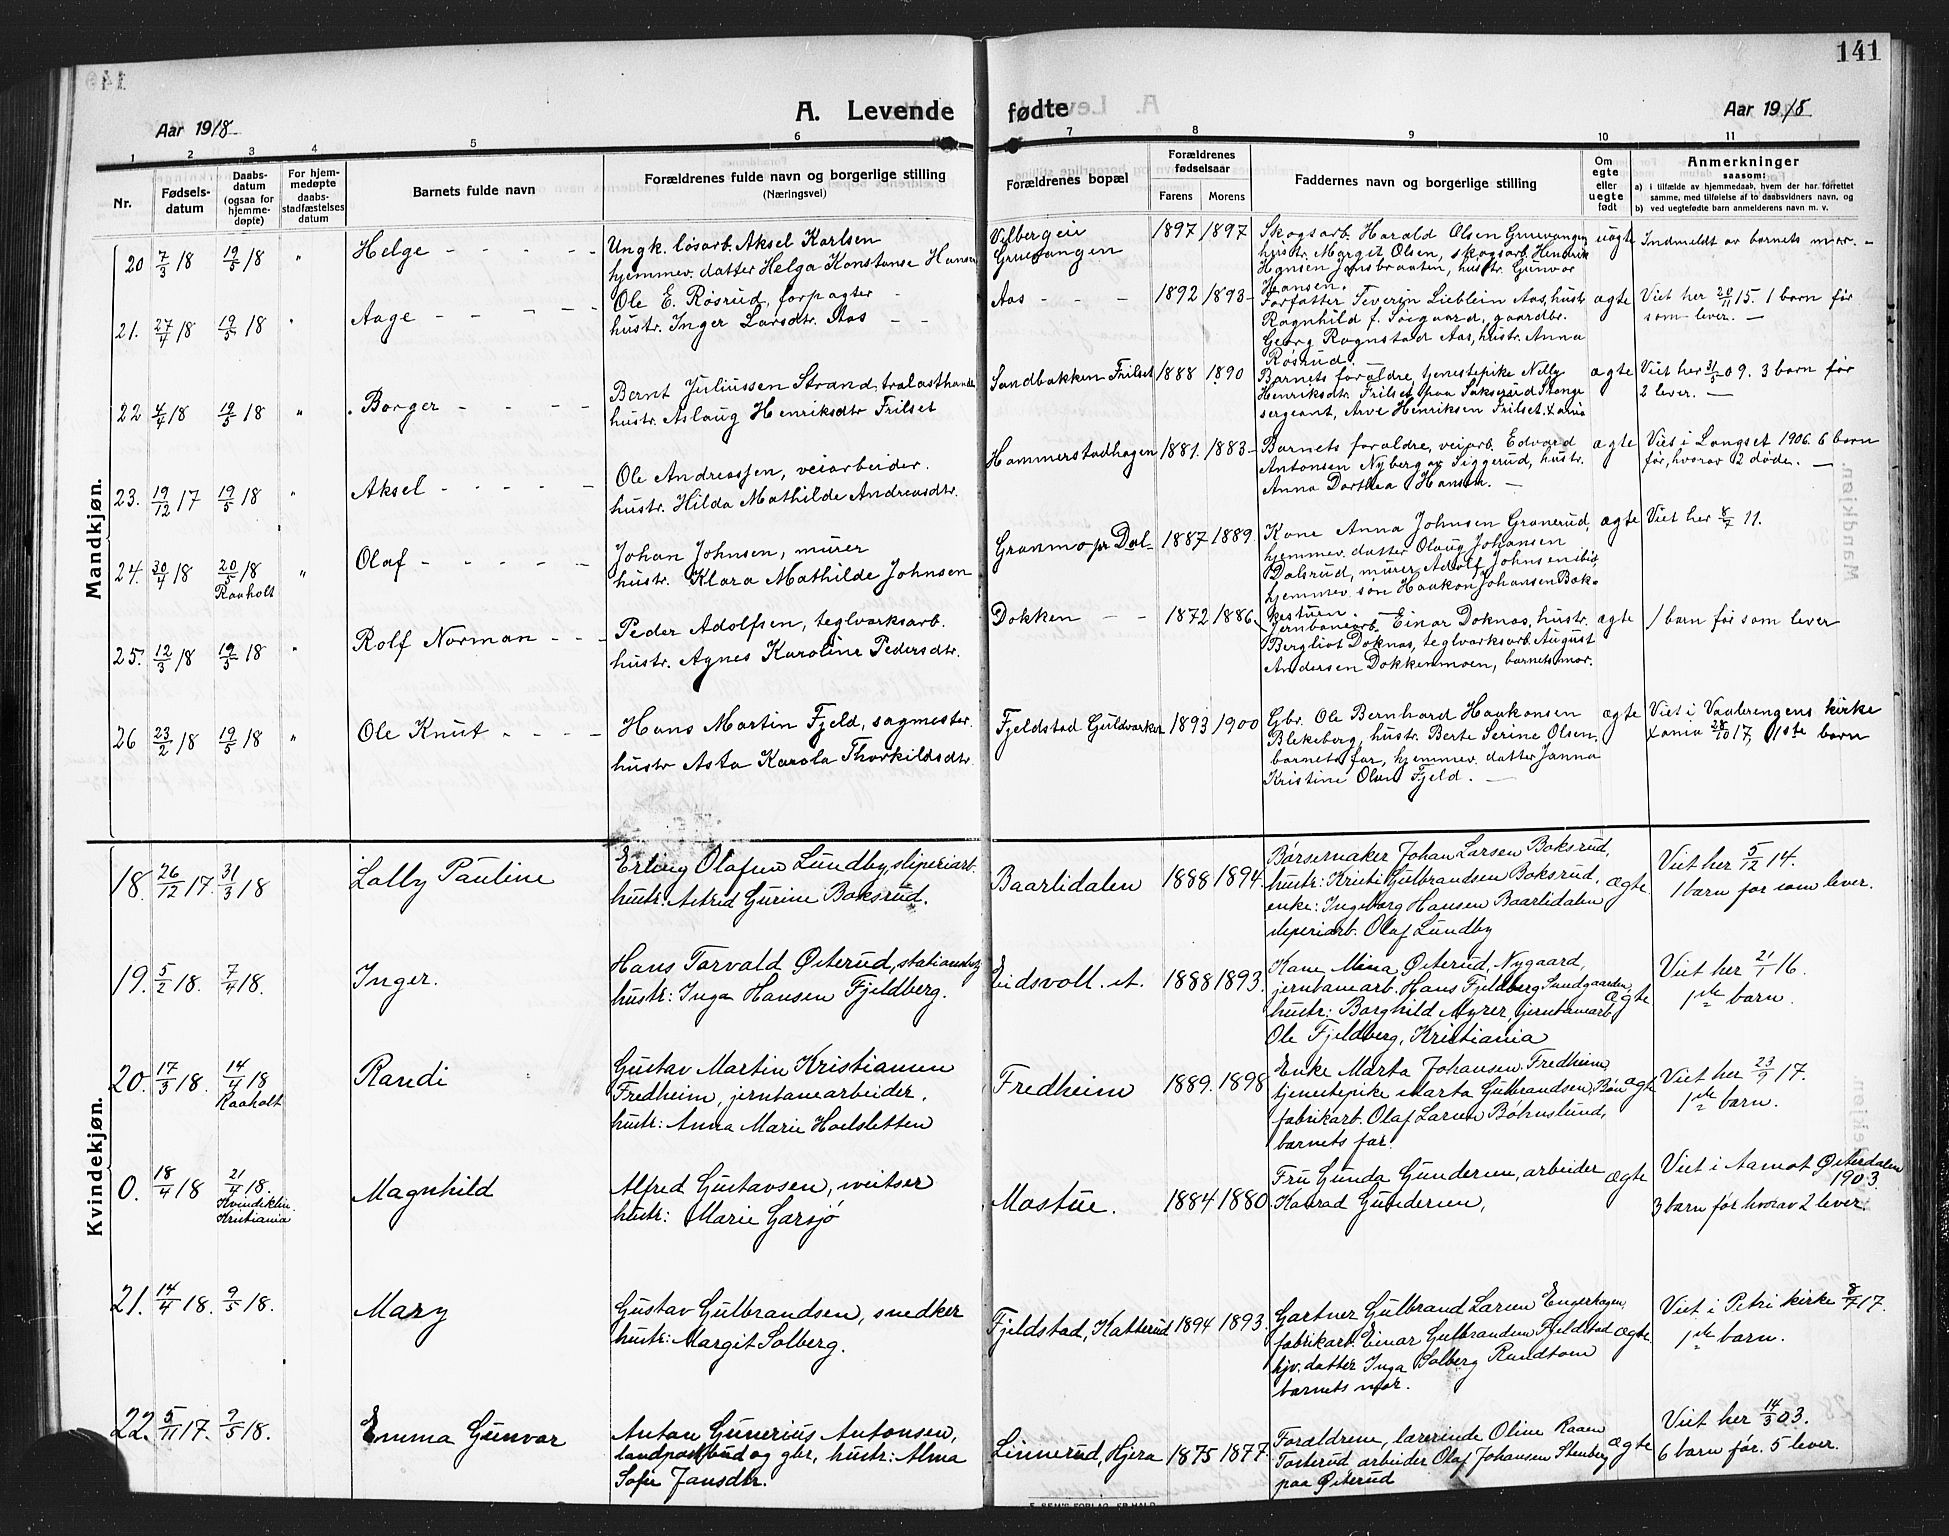 141
A. Levende fødte
Aar 1918
Aar 1918
1 2 3 4 5 6 7 8 9 10 11
Nr.
Fødsels-
datum
Daabs-
datum
(ogsaa for
hjemme-
døpte)
For hjem-
medøpte
daabs-
stadfæstelses
datum
Barnets fulde navn
Forældrenes fulde navn og borgerlige stilling
(Næringsvei)
Forældrenes bopæl
Forældrenes
fødselsaar
Farens Morens
Faddernes navn og borgerlige stilling
Om
egte
eller
uegte
født
Anmerkninger
saasom:
a) i tilfælde av hjemmedaab, hvem der har forrettet
samme, med tilføielse af to daabsvidners navn, og
b) ved uegtefødte barn anmelderens navn m. v.
Mandkjøn.
20 7/3 18 19/5 18 " Helge
Ungk. løsarb. Aksel Karlsen
hjemmev. datter Helga Konstanse Hansen
Vilbergeie
Gruevangen
1897 1897
Skogsarb. Harald Olsen Gruevangen
hustr. Margit Olsen, skogsarb. Hendrik
Hansen Jonsbraaten, hustr. Gunvor
Hansen.
uægte
Indmeldt av barnets mor.
21. 27/4 18 19/5 18 " Aage
Ole E. Røsrud, forpagter
hustr. Inger Larsdtr. Aas
Aas
1892 1893
Forfatter Severin Lieblein Aas, hustr.
Ragnhild f. Seigaard, gaardbr.
Georg Ragnstad Aas, hustr. Anna
Røsrud.
ægte
Viet her 20/11 15. 1 barn før
som lever.
22 4/4 18 19/5 18 " Borger
Bernt Juliussen Strand, trælasthandl.
hustr. Aslaug Henriksdtr Frilset
Sandbakken Frilset
1888 1890
Barnets forældre, tjenestepike Nelly
Henriksdtr. Frilset paa Saksrud Stange
sergeant, Arve Henriksen Frilset. Xania
ægte
Viet her 31/5 09. 3 barn før
2 lever.
23. 19/12 17 19/5 18 " Aksel
Ole Andreassen, veiarbeider.
hustr. Hilda Mathilde Andreasdtr.
Hammerstadhagen
1881. 1883
Barnets forældre, veiarb. Edvard
Antonsen Nyberg av Siggerud, hustr.
Anna Dorthea Hansen.
ægte
Viet i Langset 1906. 6 barn
før, hvorav 2 døde.
24. 30/4 18 20/5 18 " Olaf
Raaholt
Johan Johnsen, murer
hustr. Klara Mathilde Johnsen
Granmo pr Dal
1887 1889
Kone Anna Johnsen Granerud,
hjemmev. datter Olaug Johansen
Dalsrud, murer Adolf Johnsen ibid
hjemmev. søn Haakon Johansen Bok-
kestuen.
ægte
Viet her 8/7 11.
25. 12/3 18 19/5 18 " Rolf Norman
Peder Adolfsen, teglværksarb.
hustr. Agnes Karoline Pedersdtr.
Dokken
1872 1886
Jernbanearb. Einar Doknas, hustr.
Bergliot Doknas, teglværksarb. August
Andersen Dokkenmoen, barnets mor.
ægte
1 barn før som lever
26 23/2 18 19/5 18 " Ole Knut
Hans Martin Fjeld, sagmester.
hustr Asta Karola Thorkildsdtr.
Fjeldstad Guldverket
1893 1900
Gbr. Ole Bernhard Haakonsen
Blekeberg, hustr. Berte Serine Olsen,
barnets far, hjemmev. datter Janna
Kristine Olsen Fjeld.
ægte
Viet i Vaalerengens kirke
Xania 28/10 17, 1ste barn
Kvindekjøn.
18. 26/12 17. 31/3 18 Lally Pauline
Erling Olafsen Lundby, sliperiarb.
hustr: Astrid Gurine Boksrud.
Baarlidalen
1888 1894
Børsemaker Johan Larsen Boksrud,
hustr: Kristi Gulbrandsen Boksrud,
enke: Ingeborg Hansen Baarlidalen
sliperiarb. Olaf Lundby
Ægte
Viet her 5/12 14.
1 barn før som lever.
19. 5/2 18. 7/4 18. Inger.
Hans Torvald Østerud, stationsbetj.
hustr: Inga Hansen Fjeldberg.
Eidsvoll. st.
1888 1893.
Kone Mina Østerud, Nygaard,
jernbanearb. Hans Fjeldberg Sandgaarden,
hustr: Borghild Myrer, jernbanearb.
Ole Fjeldberg, Kristiania
Ægte
Viet her 21/1 16.
1ste barn.
20. 17/3 18. 14/4 18 Randi
Raaholt
Gustav Martin Kristiansen
Fredheim, jernbanearbeider,
hustr: Anna Marie Hoelsletten
Fredheim
1889. 1898
Enke Marta Johansen Fredheim
tjenestepike Marta Gulbrandsen, Bøn
fabrikarb. Olaf Larsen Bøhnslund,
barnets far
ægte
Viet her 23/9 17.
1ste barn.
0. 18/4 18 21/4 18. Magnhild
Kvindeklin.
Kristiania
Alfred Gustavsen, sveitser
hustr: Marie Garsjø
Mostue.
1884 1880
Fru Gunda Gundersen, arbeider
Konrad Gundersen,
ægte
Viet i Aamot Østerdalen
1903
3 barn før hvorav 2 lever.
21. 14/4 18. 9/5 18. Mary
Gustav Gulbrandsen, snedker
hustr: Margit Solberg.
Fjeldstad, Katterud
1894 1893
Gartner Gulbrand Larsen Engerhagen,
fabrikarb. Einar Gulbrandsen Fjeldstad
hjv. datter Inga Solberg Rundtom
barnets mor.
ægte
Viet i Petri kirke 8/7 17.
1ste barn.
22. 5/11 17. 9/5 18. Emma Gunvor
Anton Gunerius Antonsen,
landpostbud og gbr, hustr: Alma
Sofie Jansdtr.
Linnerud, Hjera
1875 1877
Forældrene, lærerinde Oline Raaen
Tosterud, arbeider Olaf Johansen Stenberg
paa Østerud
ægte
Viet her 14/3 03.
6 barn før. 5 lever.